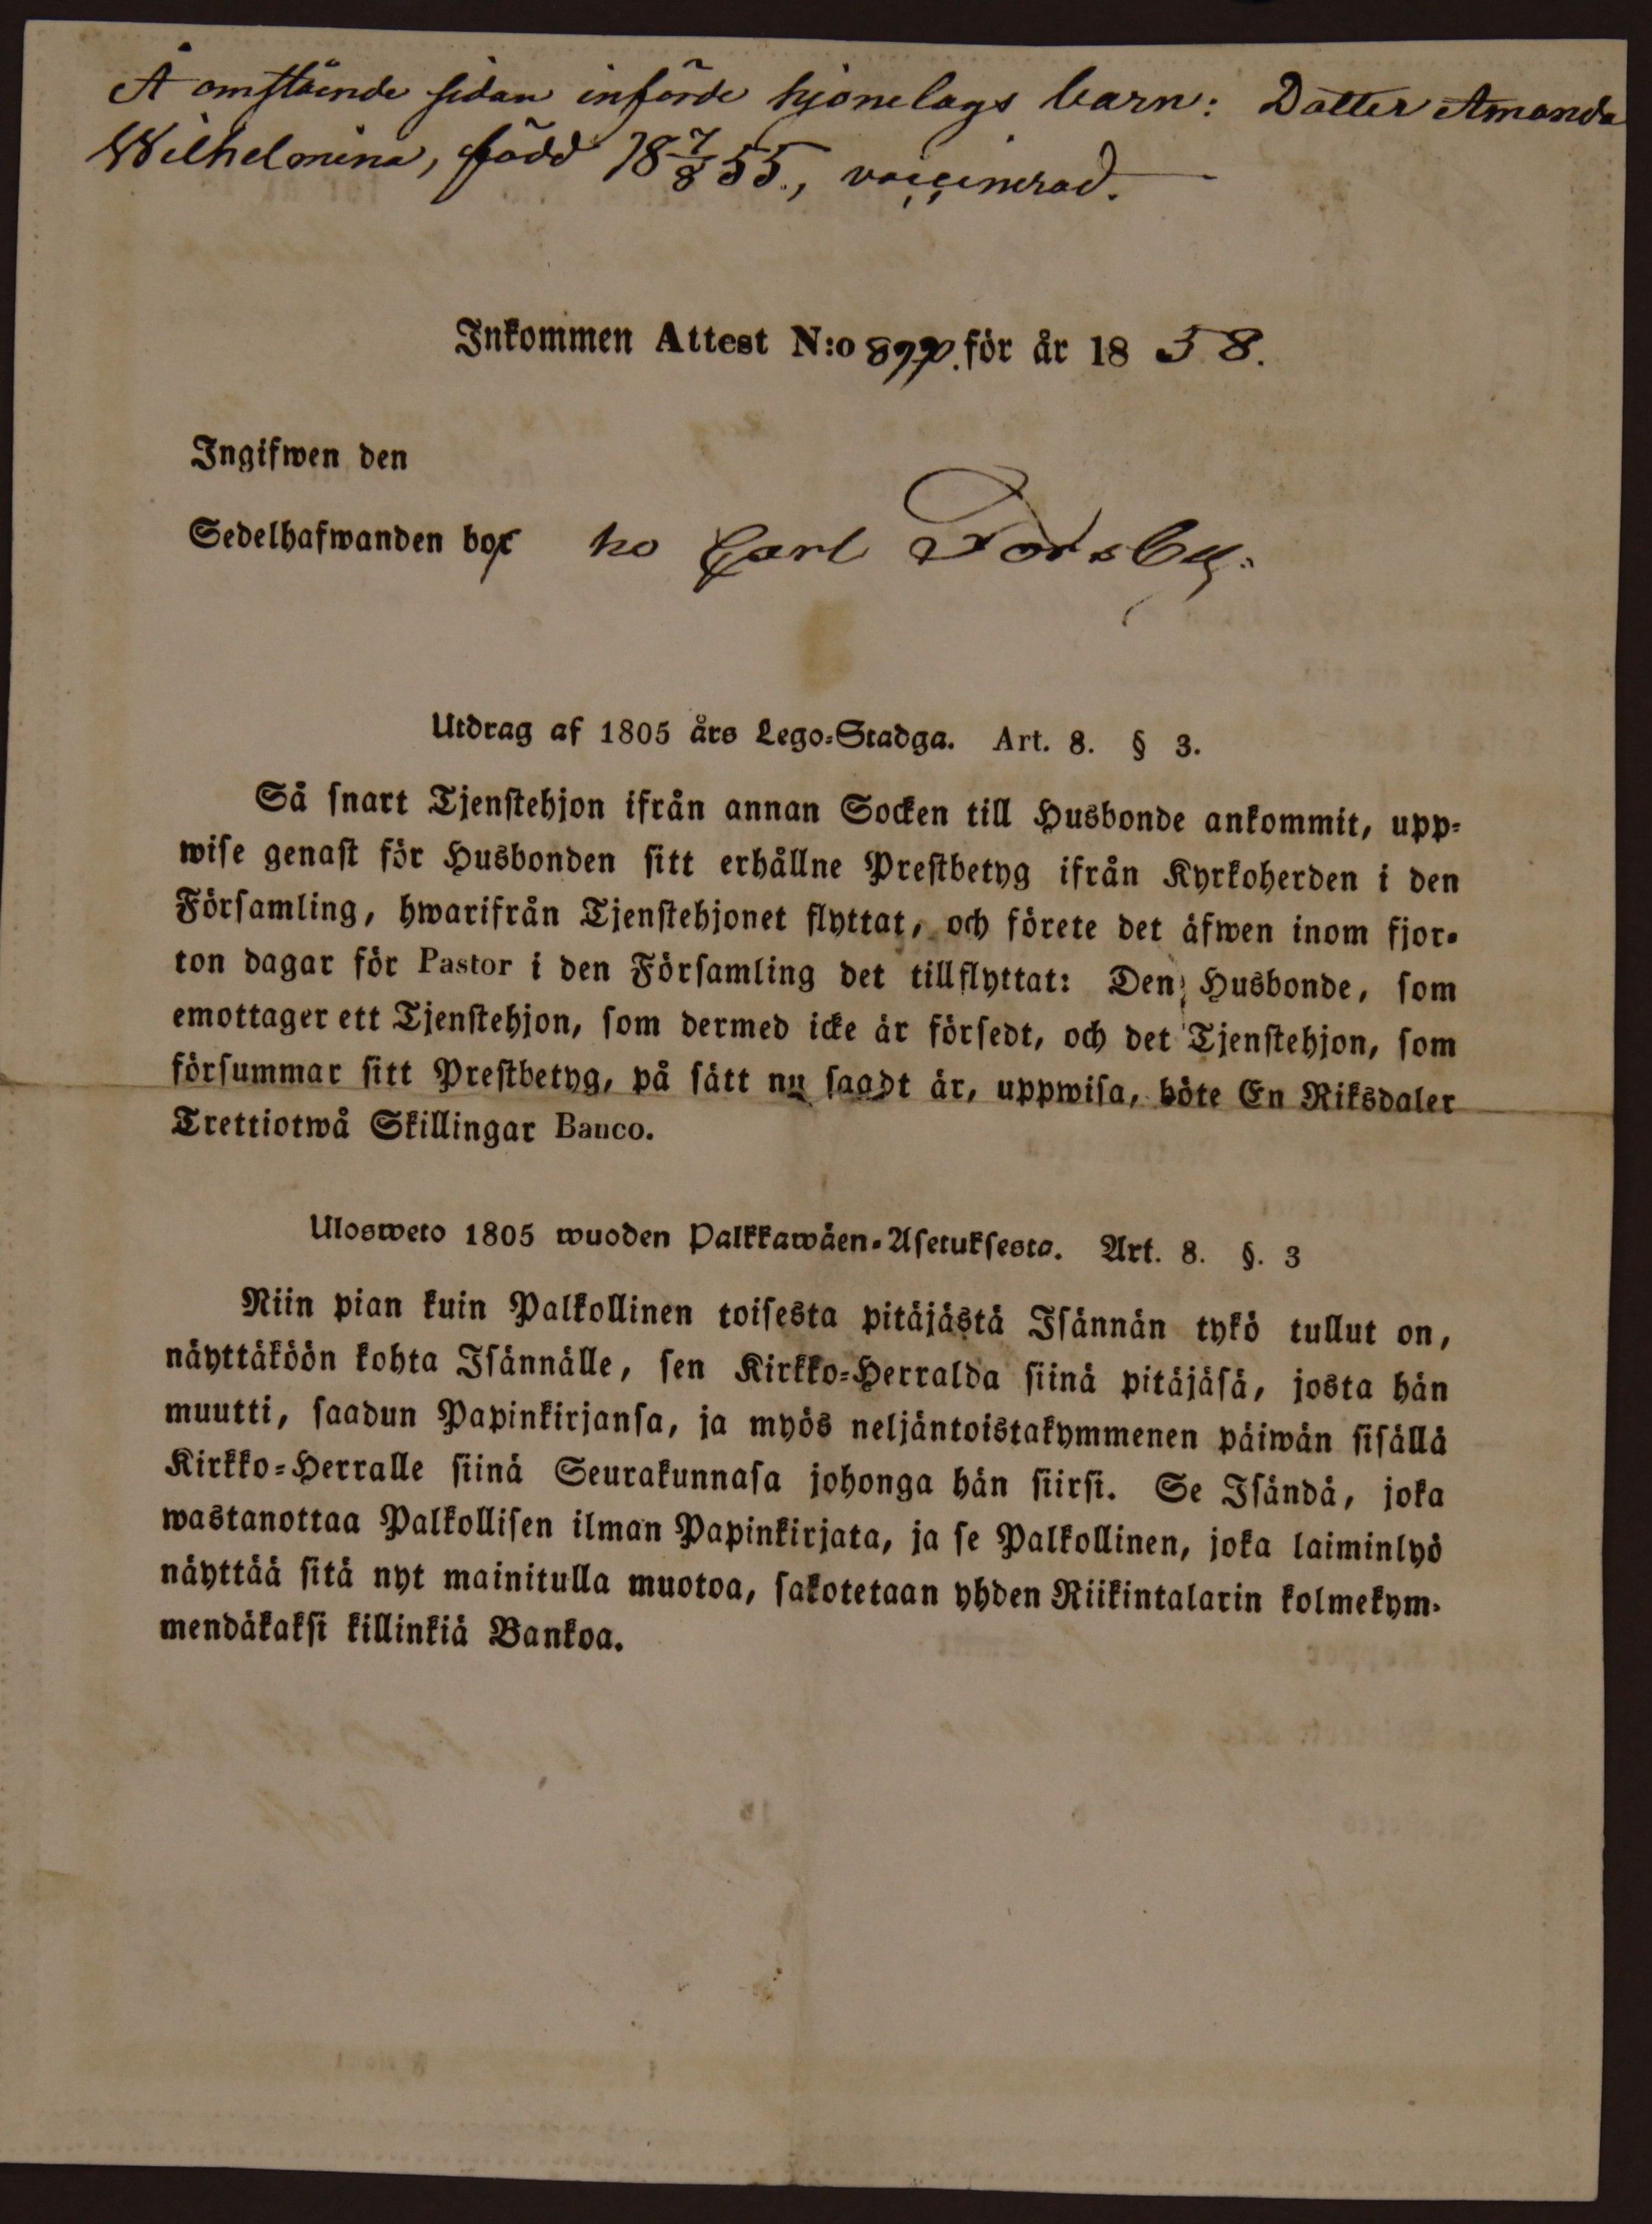 Å omstående sidan införde hjonelags barn: Dotter Amanda
Wilhelmina, född 18 7/8 55., vaccinerad.
Inkommen Attest N:o för år 18 58.
Ingifwen den
Sedelhafwanden bor ho Carl Forsby
Utdrag af 1805 års Lego-Stadga. Art. 8. § 3.
Så snart Tjenstehjon ifrån annan Socken till Husbonde ankommit, upp-
wise genast för Husbonden sitt erhållne Prestbetyg ifrån Kyrkoherden i den
Församling, hwarifrån Tjenstehjonet flyttat, och förete det äfwen inom fjor-
ton dagar för Pastor i den Församling det tillflyttat: Den Husbonde, som
emottager ett Tjenstehjon, som dermed icke är försedt, och det Tjenstehjon, som
försummar sitt Prestbetyg, på sätt nu sagdt är, uppwisa, böte En Riksdaler
Trettiotwå Skillingar Banco.
Ulosweto 1805 wuoden Palkkawäen-Asetuksesta. Art. 8. §. 3
Niin pian kuin Palkollinen toisesta pitäjästä Isännän tykö tullut on,
näyttäköön kohta Isännälle, sen Kirkko-Herralda siinä pitäjäsä, josta hän
muutti, saadun Papinkirjansa, ja myös neljäntoistakymmenen päiwän sisällä
Kirkko-Herralle siinä Seurakunnasa johonga hän siirsi. Se Isändä, joka
wastanottaa Palkollisen ilman Papinkirjata, ja se Palkollinen, joka laiminlyö
näyttää sitä nyt mainitulla muotoa, sakotetaan yhden Riikintalarin kolmekym-
mendäkaksi killinkiä Bankoa.